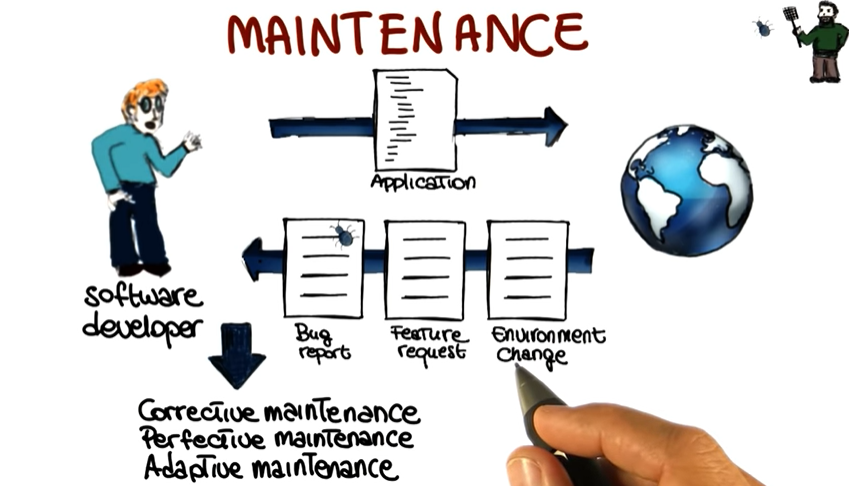 MAINTENANCE
Application
software
developer
Bug
report
Feature
request
Environment
change
Corrective maintenance
Perfective maintenance
Adaptive maintenance